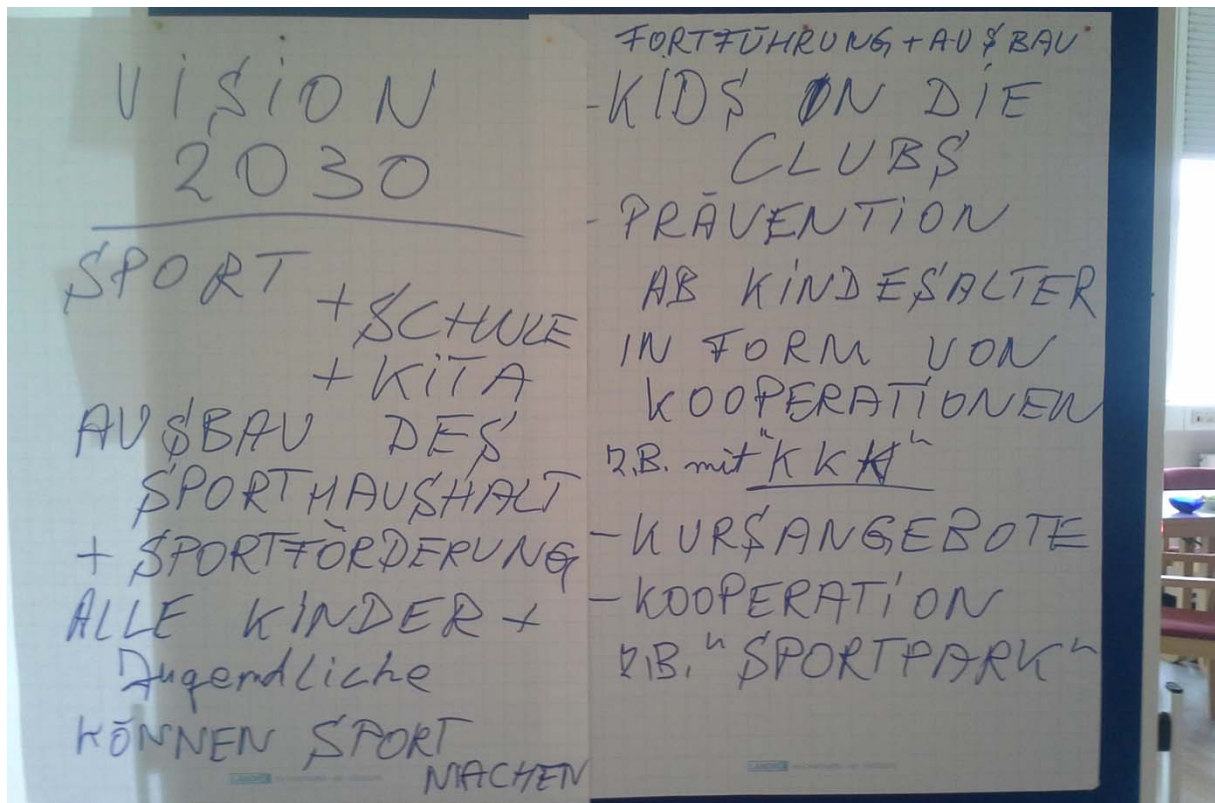 VISION
2030
SPORT
+ SCHULE
+ KITA
AUSBAU DES
SPORTHAUSHALT
+ SPORTFÖRDERUNG
ALLE KINDER +
Jugendliche
KÖNNEN SPORT
MACHEN
FORTFÜHRUNG + AUSBAU
- KIDS IN DIE
CLUBS
- PRÄVENTION
AB KINDESALTER
IN FORM VON
KOOPERATIONEN
z.B. mit "KKH"
- KURSANGEBOTE
- KOOPERATION
z.B. "SPORTPARK"